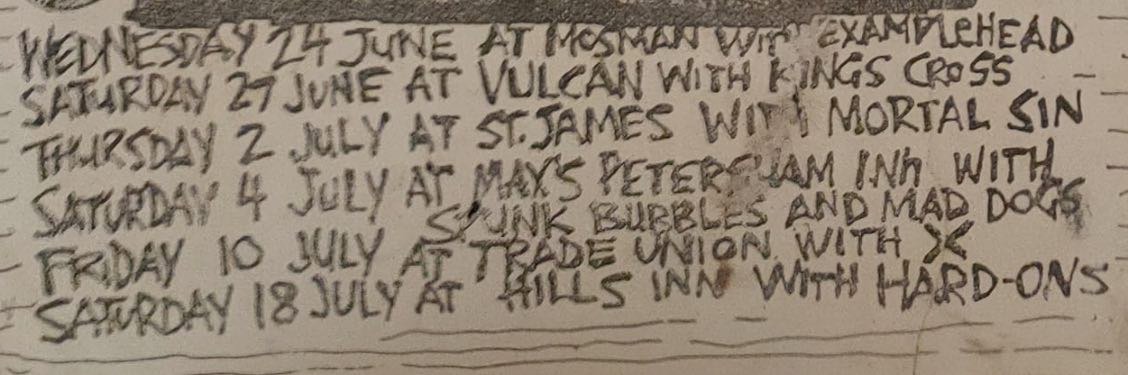 WEDNESDAY 24 JUNE AT MOSMAN WITH EXAMPLEHEAD
SATURDAY 27 JUNE AT VULCAN WITH KINGS CROSS
THURSDAY 2 JULY AT ST. JAMES WITH MORTAL SIN
SATURDAY 4 JULY AT MAX'S PETERSHAM INN WITH
SPUNK BUBBLES AND MAD DOGS
FRIDAY 10 JULY AT TRADE UNION WITH X
SATURDAY 18 JULY AT HILLS INN WITH HARD-ONS